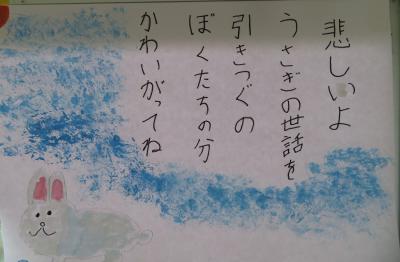 悲しいよ
うさぎの世話を
引きつぐの
ぼくたちの分
かわいがってね